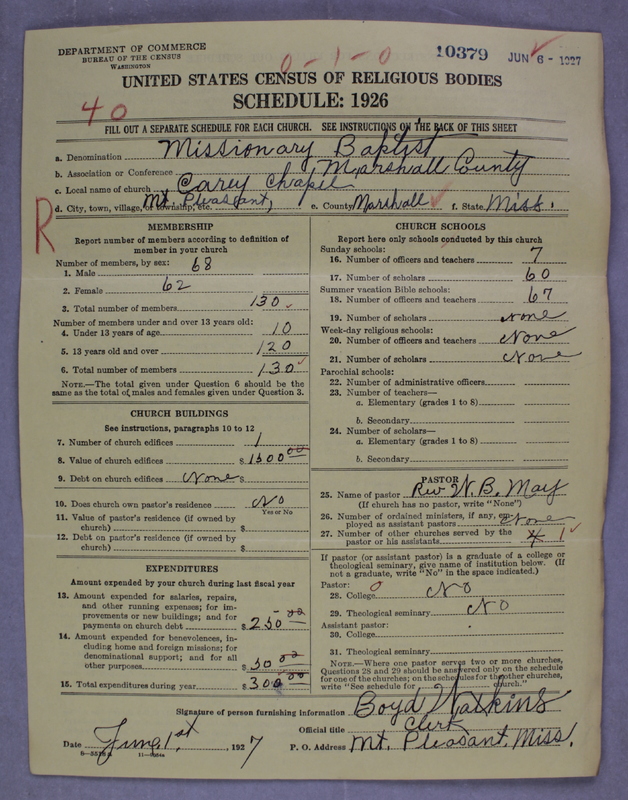 DEPARTMENT OF COMMERCE
BUREAU OF THE CENSUS
WASHINGTON
0-1-0
10379 JUN 6 - 1927
UNITED STATES CENSUS OF RELIGIOUS BODIES
SCHEDULE: 1926
40
FILL OUT A SEPARATE SCHEDULE FOR EACH CHURCH. SEE INSTRUCTIONS ON THE BACK OF THIS SHEET
a. Denomination Missionary Baptist
b. Association or Conference Marshall County
c. Local name of church Carey Chapel
d. City, town, village, or township, etc. Mt. Pleasant, e. County Marshall f. State Miss.
R
MEMBERSHIP
Report number of members according to definition of
member in your church
Number of members, by sex:
1. Male 68
2. Female 62
3. Total number of members 130
Number of members under and over 13 years old:
4. Under 13 years of age 10
5. 13 years old and over 120
6. Total number of members 130
NOTE.—The total given under Question 6 should be the
same as the total of males and females given under Question 3.
CHURCH BUILDINGS
See instructions, paragraphs 10 to 12
7. Number of church edifices 1
8. Value of church edifices $1500 00
9. Debt on church edifices None $
10. Does church own pastor's residence No
Yes or No
11. Value of pastor's residence (if owned by
church) $
12. Debt on pastor's residence (if owned by
church) $
EXPENDITURES
Amount expended by your church during last fiscal year
13. Amount expended for salaries, repairs,
and other running expenses; for im-
provements or new buildings; and for
payments on church debt $250 00
14. Amount expended for benevolences, in-
cluding home and foreign missions; for
denominational support; and for all
other purposes $50 00
15. Total expenditures during year $300 00
CHURCH SCHOOLS
Report here only schools conducted by this church
Sunday schools:
16. Number of officers and teachers 7
17. Number of scholars 60
Summer vacation Bible schools:
18. Number of officers and teachers 67
19. Number of scholars None
Week-day religious schools:
20. Number of officers and teachers None
21. Number of scholars None
Parochial schools:
22. Number of administrative officers
23. Number of teachers—
a. Elementary (grades 1 to 8)
b. Secondary
24. Number of scholars—
a. Elementary (grades 1 to 8)
b. Secondary
PASTOR
25. Name of pastor Rev W. B. May
(If church has no pastor, write "None")
26. Number of ordained ministers, if any, em-
ployed as assistant pastors None
27. Number of other churches served by the
pastor or his assistants 4 1
If pastor (or assistant pastor) is a graduate of a college or
theological seminary, give name of institution below. (If
not a graduate, write "No" in the space indicated.)
Pastor: 0
28. College No
29. Theological seminary No
Assistant pastor:
30. College
31. Theological seminary
NOTE.—Where one pastor serves two or more churches,
Questions 28 and 29 should be answered only on the schedule
for one of the churches; on the schedules for the other churches,
write "See schedule for church."
Signature of person furnishing information Boyd Watkins
Official title Clerk
Date June 1st, 1927 P. O. Address Mt. Pleasant, Miss.